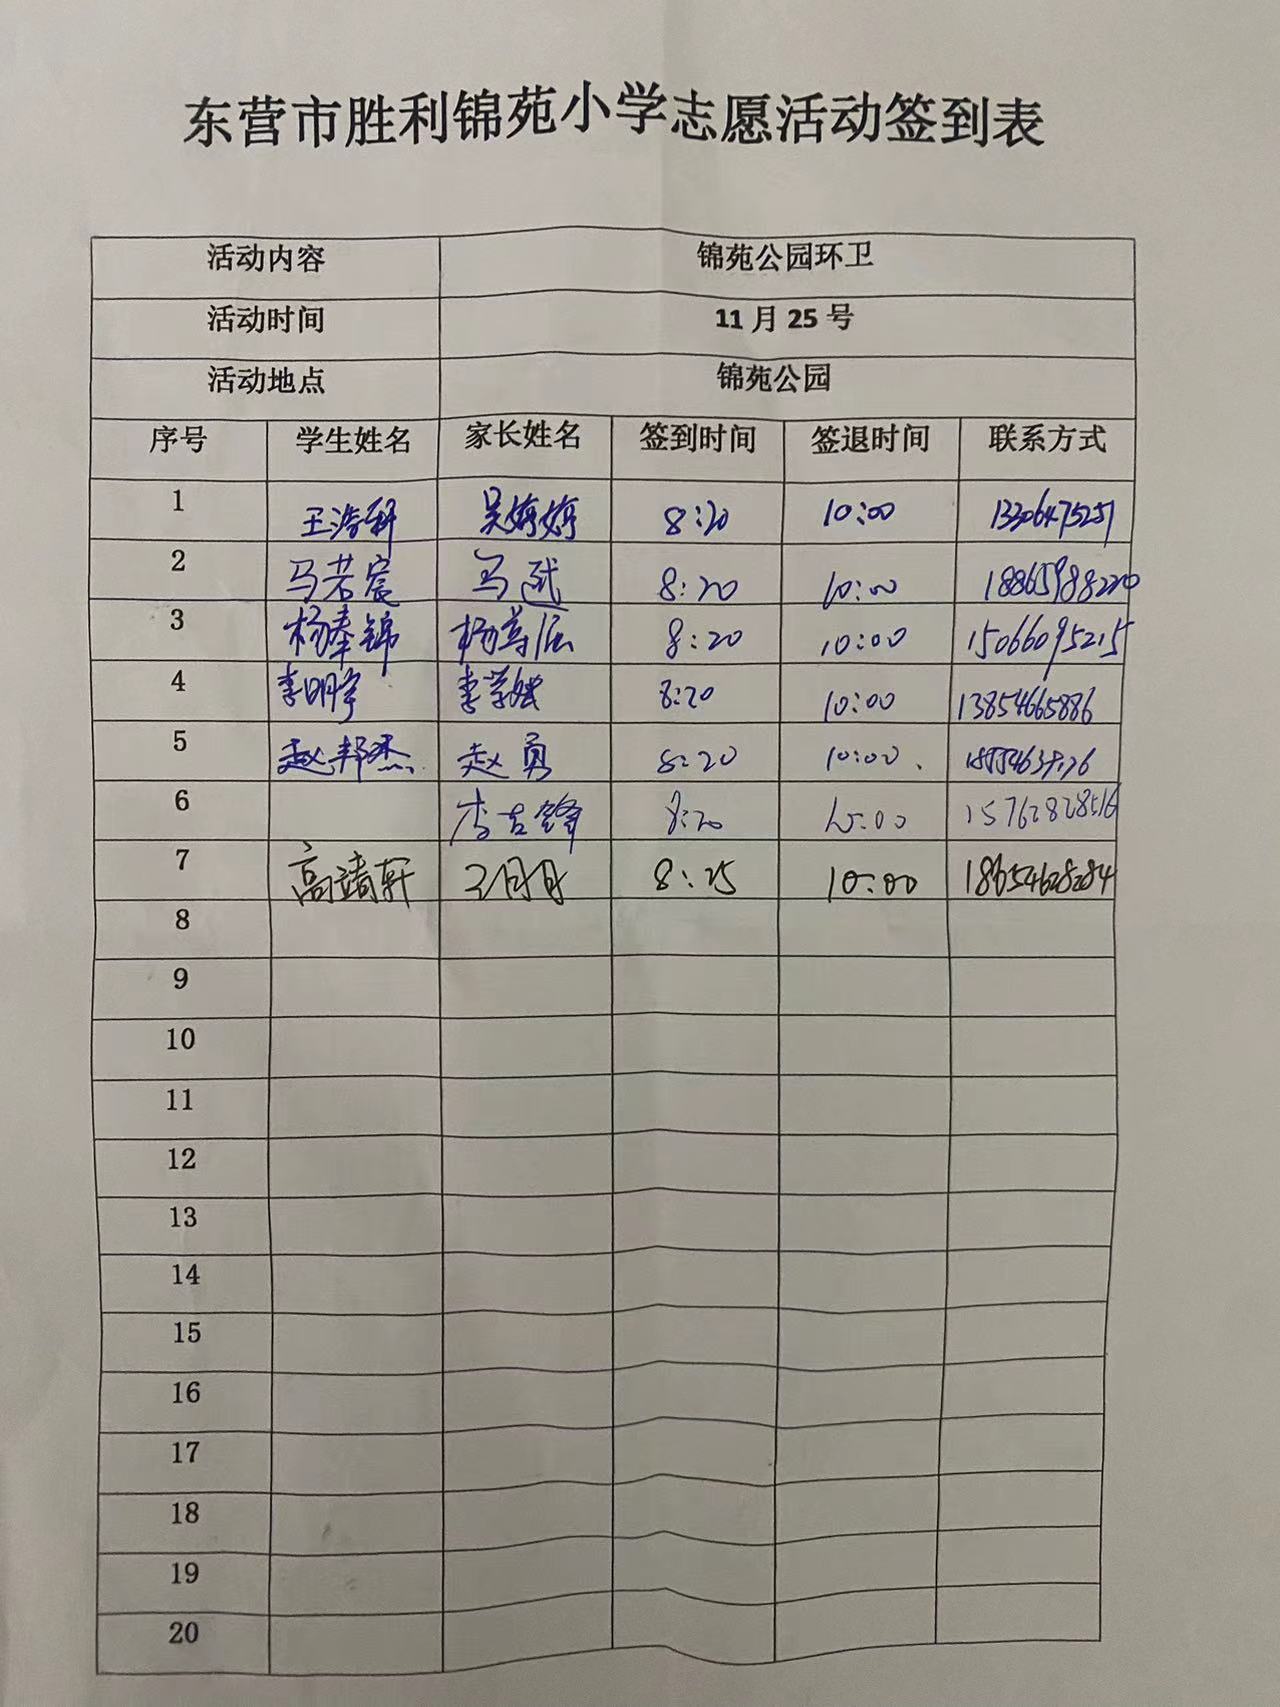 东营市胜利锦苑小学志愿活动签到表
活动内容 锦苑公园环卫
活动时间 11月25号
活动地点 锦苑公园
序号 学生姓名 家长姓名 签到时间 签退时间 联系方式
1 王浩科 吴婷婷 8:20 10:00 13306475251
2 马若宸 8:20 10:00 18865988220
3 杨奉锦 8:20 10:00 15066095215
4 8:20 10:00 13854665886
5 赵邦杰 赵勇 8:20 10:00
6 李吉锋 8:20 10:00 15762828516
7 高靖轩 8:25 10:00 18654628284
8
9
10
11
12
13
14
15
16
17
18
19
20